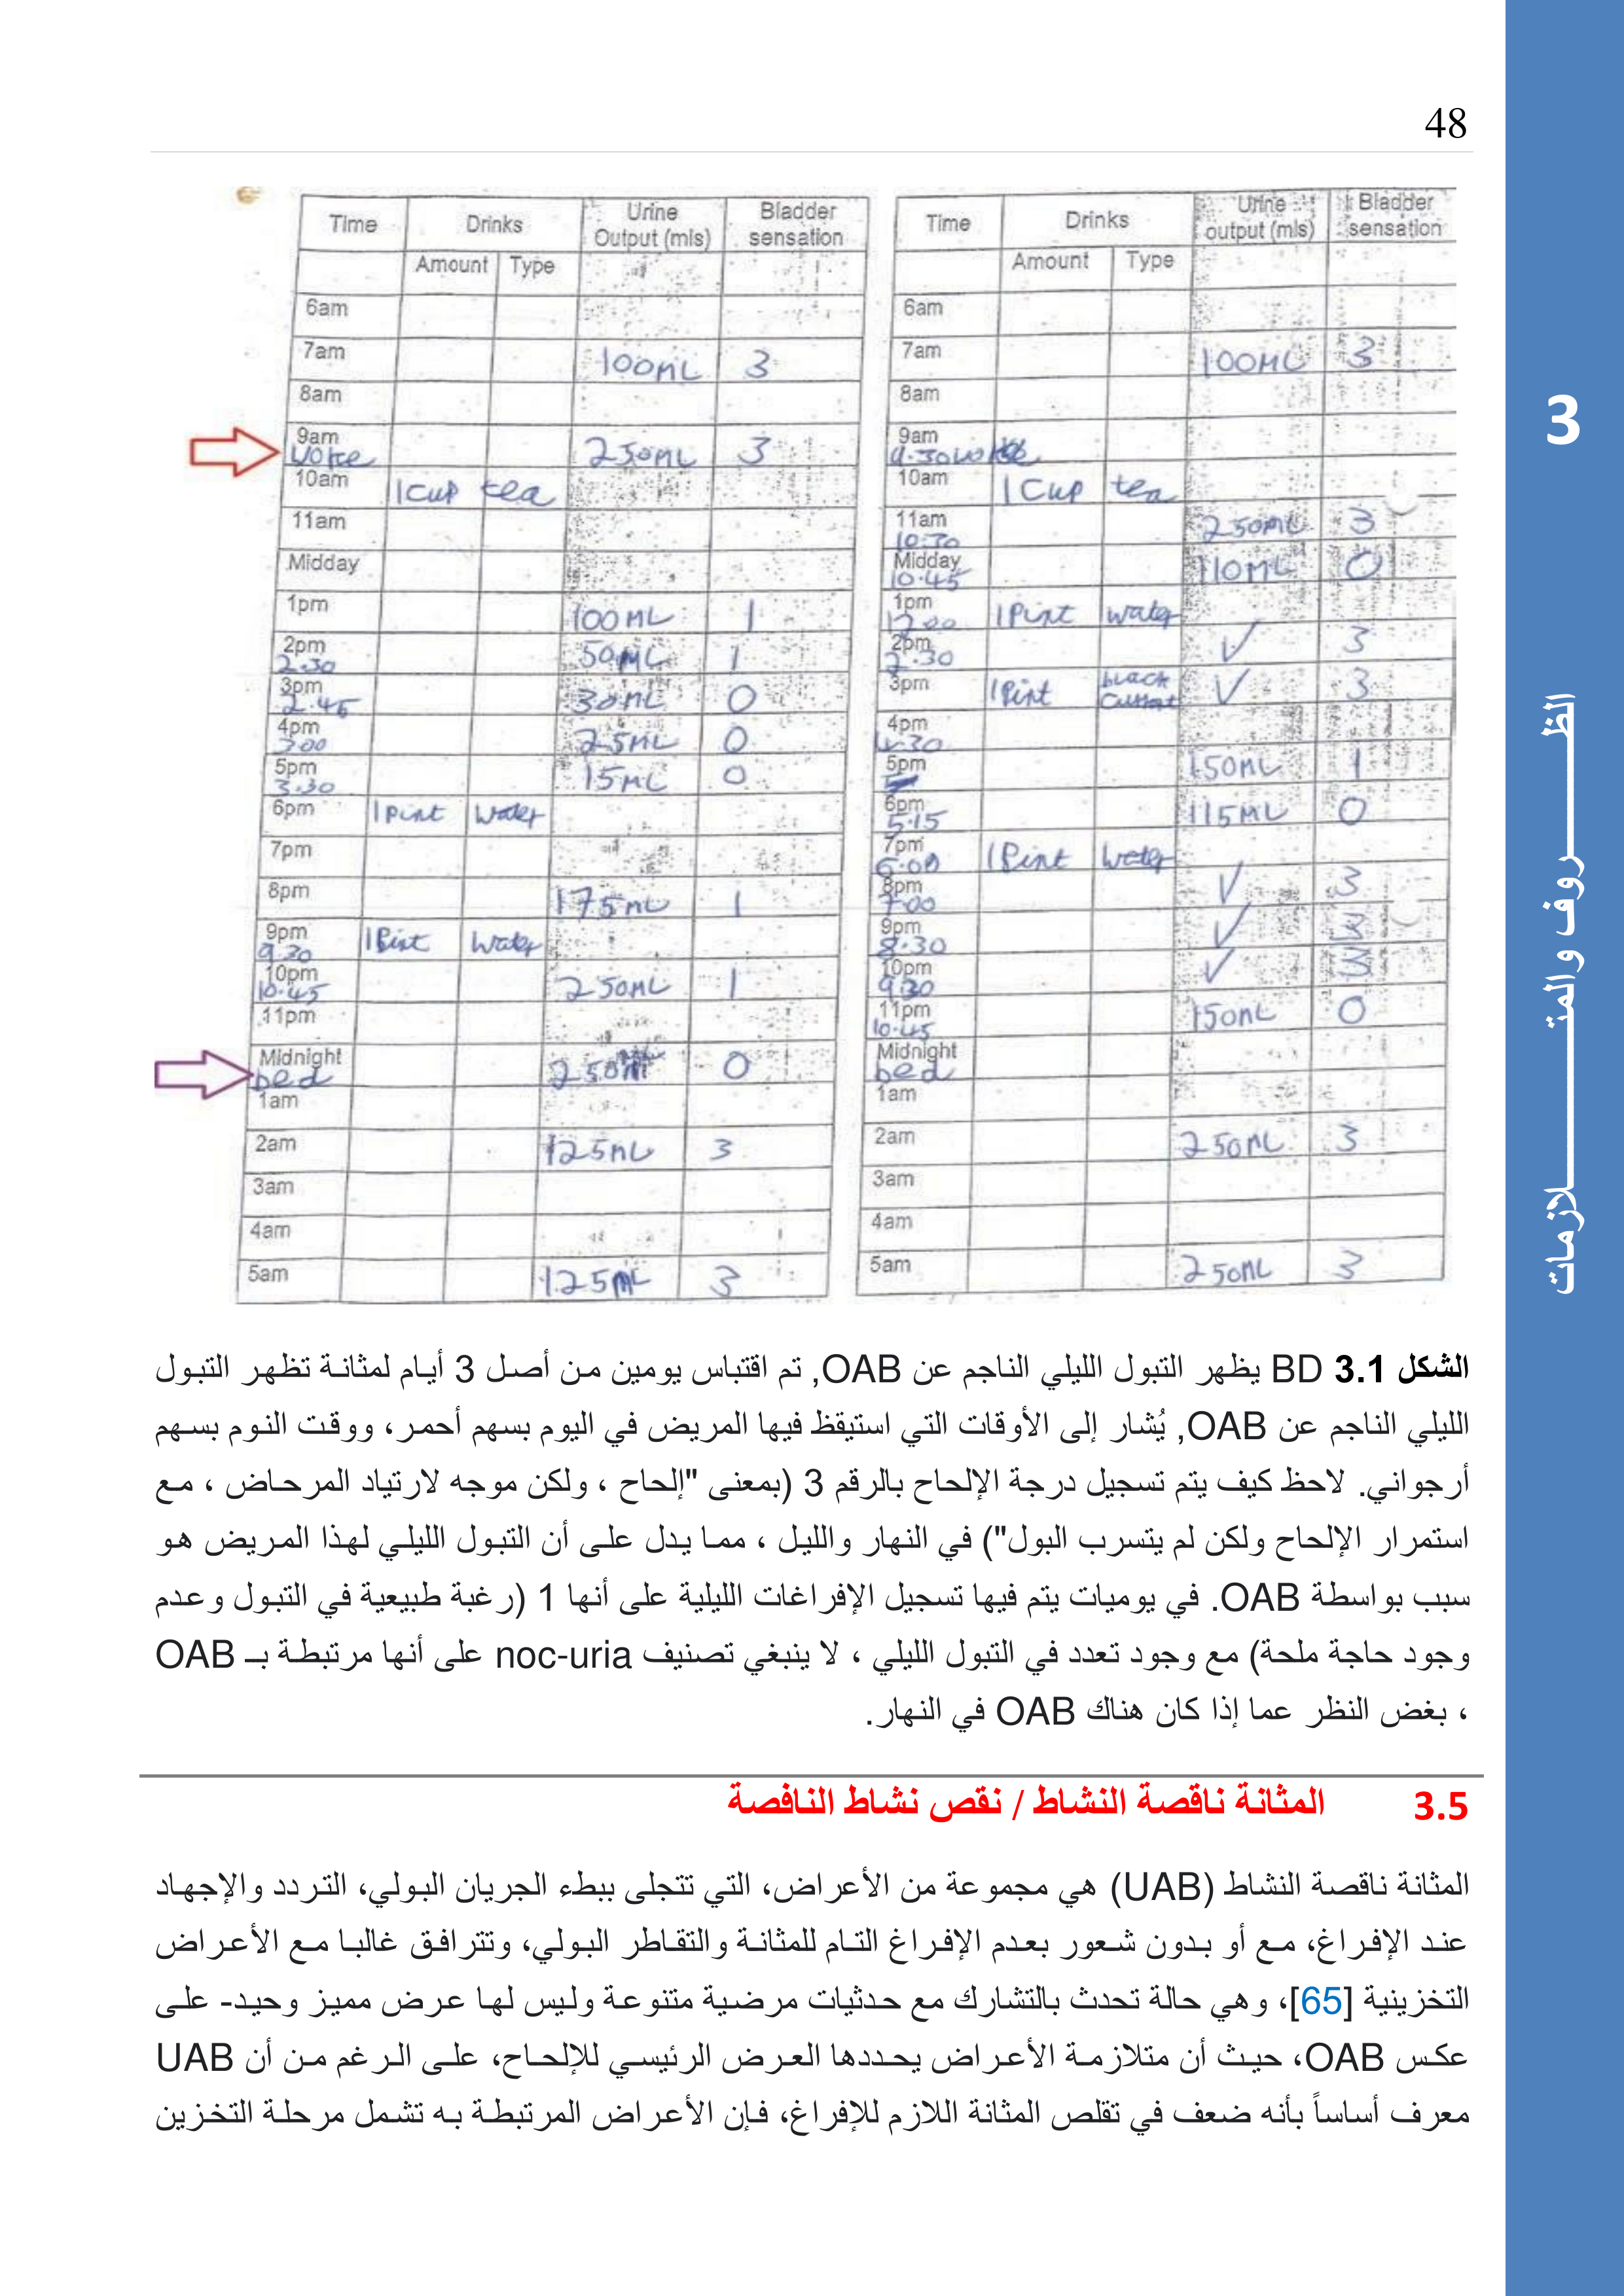 48
Time Drinks Urine Output (mls) Bladder sensation
Amount Type
6am
7am 100ML 3
8am
9am woke 250ML 3
10am 1 Cup tea
11am
Midday
1pm 100ML 1
2pm 2.30 50ML 1
3pm 2.45 30ML 0
4pm 3.00 25ML 0
5pm 3.30 15ML 0
6pm 1 Pint Water
7pm
8pm 175ML 1
9pm 9.30 1 Pint Water
10pm 10.45 250ML 1
11pm
Midnight bed 250M 0
1am
2am 125ML 3
3am
4am
5am 125ML 3
Time Drinks Urine output (mls) Bladder sensation
Amount Type
6am
7am 100ML 3
8am
9am 9.30 woke
10am 1 Cup tea
11am 10.30 250ML 3
Midday 10.45 110ML 0
1pm 12.00 1 Pint water
2pm 2.30 ✓ 3
3pm 1 Pint black Currant ✓ 3
4pm 4.30
5pm 150ML 1
6pm 5.15 115ML 0
7pm 6.00 1 Pint Water
8pm 7.00 ✓ 3
9pm 8.30 ✓ 3
10pm 9.30 ✓ 3
11pm 10.45 150ML 0
Midnight bed
1am
2am 250ML 3
3am
4am
5am 250ML 3
الشكل 3.1 BD يظهر التبول الليلي الناجم عن OAB, تم اقتباس يومين من أصل 3 أيام لمثانة تظهر التبول
الليلي الناجم عن OAB, يُشار إلى الأوقات التي استيقظ فيها المريض في اليوم بسهم أحمر، ووقت النوم بسهم
أرجواني. لاحظ كيف يتم تسجيل درجة الإلحاح بالرقم 3 (بمعنى "إلحاح ، ولكن موجه لارتياد المرحاض ، مع
استمرار الإلحاح ولكن لم يتسرب البول") في النهار والليل ، مما يدل على أن التبول الليلي لهذا المريض هو
سبب بواسطة OAB. في يوميات يتم فيها تسجيل الإفراغات الليلية على أنها 1 (رغبة طبيعية في التبول وعدم
وجود حاجة ملحة) مع وجود تعدد في التبول الليلي ، لا ينبغي تصنيف noc-uria على أنها مرتبطة بـ OAB
، بغض النظر عما إذا كان هناك OAB في النهار.
3.5 المثانة ناقصة النشاط / نقص نشاط النافصة
المثانة ناقصة النشاط (UAB) هي مجموعة من الأعراض، التي تتجلى ببطء الجريان البولي، التردد والإجهاد
عند الإفراغ، مع أو بدون شعور بعدم الإفراغ التام للمثانة والتقاطر البولي، وتترافق غالبا مع الأعراض
التخزينية [65]، وهي حالة تحدث بالتشارك مع حدثيات مرضية متنوعة وليس لها عرض مميز وحيد- على
عكس OAB، حيث أن متلازمة الأعراض يحددها العرض الرئيسي للإلحاح، على الرغم من أن UAB
معرف أساساً بأنه ضعف في تقلص المثانة اللازم للإفراغ، فإن الأعراض المرتبطة به تشمل مرحلة التخزين
3
الظــــــروف والمتــــــــلازمات